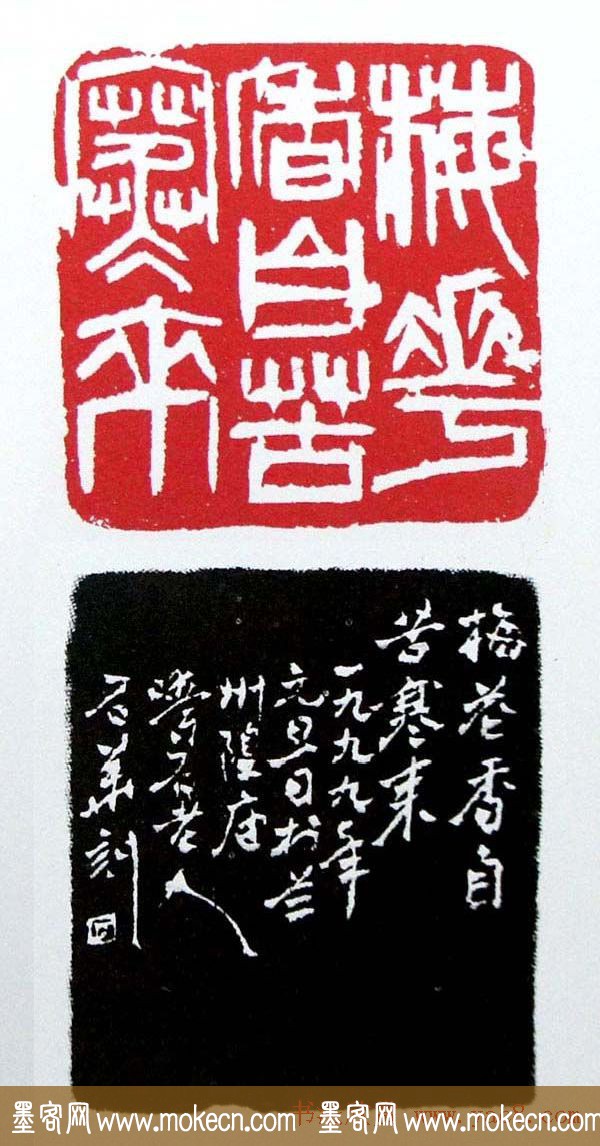 梅花
香自苦
寒來
梅花香自
苦寒来
一九九九年
元旦日於兰
州隍
老人
刻
墨客网 www.mokecn.com 墨客网 www.mokecn.com 墨客网 www.mokecn.com